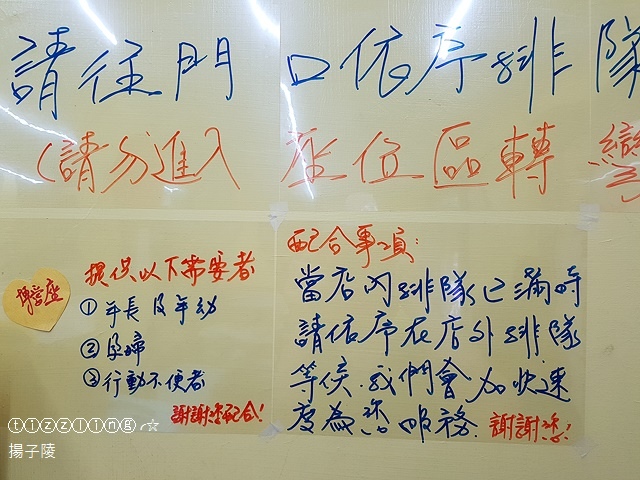 請往門口依序排隊
(請勿進入座位區轉彎
博愛座
提供以下需要者
①年長及年幼
②孕婦
③行動不便者
謝謝您配合!
配合事項:
當店內排隊已滿時
請依序在店外排隊
等候.我們會加快速
度為您服務.謝謝您!
tizzling
揚子陵